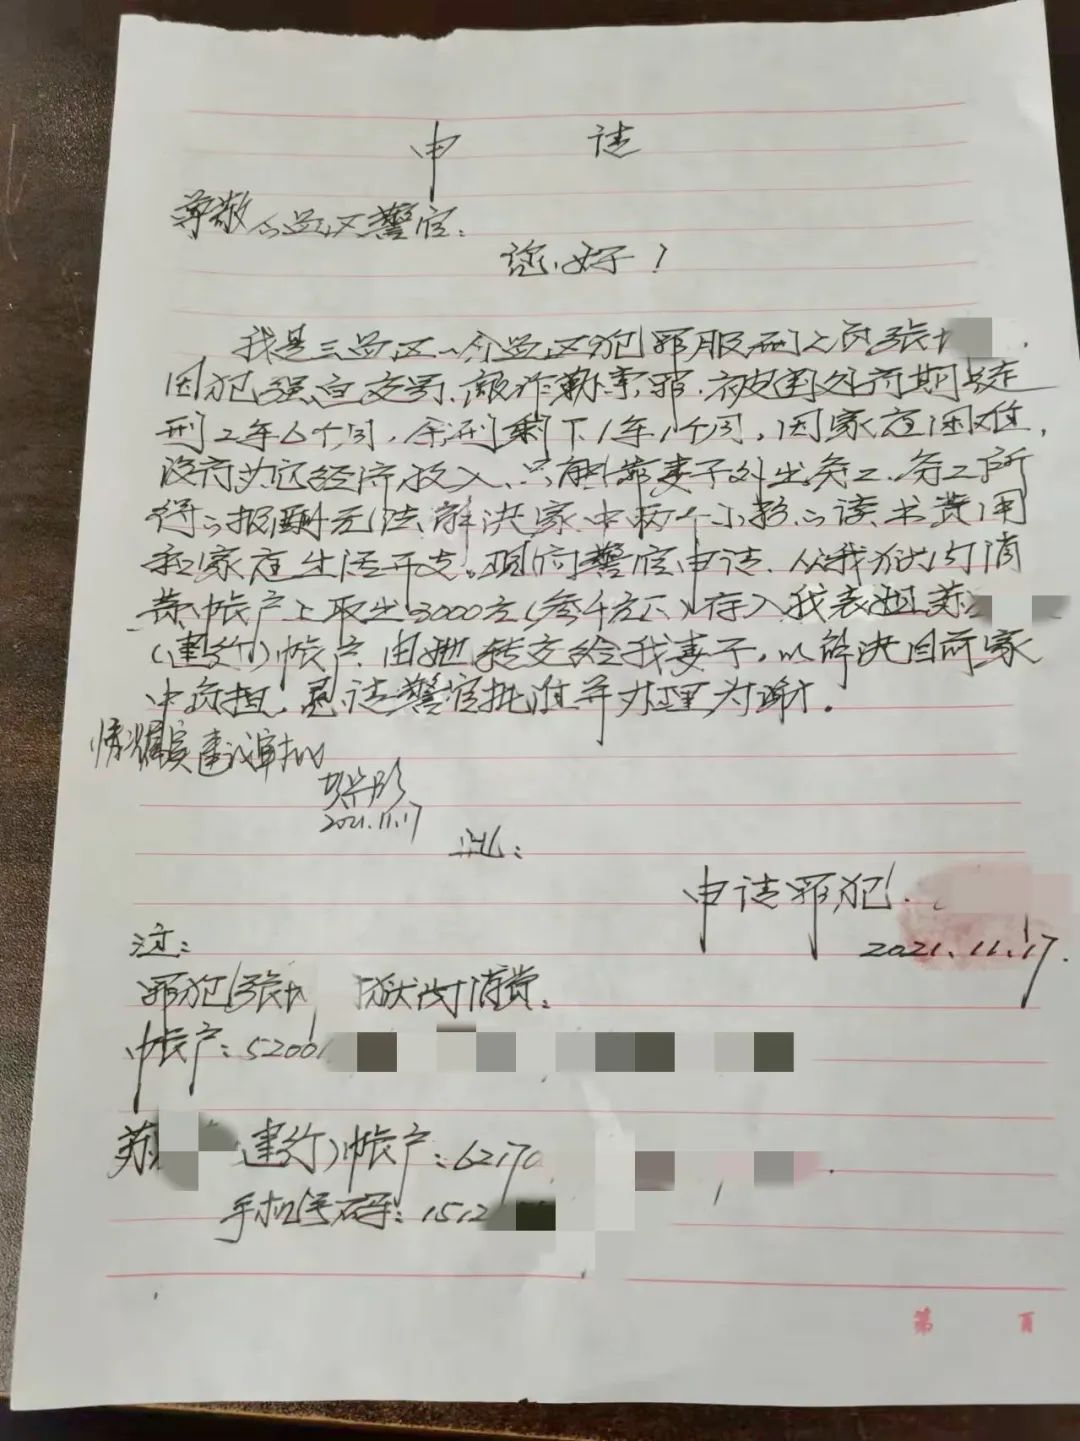 申 请
尊敬的监区警官：
您好！
我是三监区一分监区犯罪服刑人员张
因犯强迫交易、敲诈勒索罪，被判处有期徒
刑2年6个月，余刑剩下1年1个月，因家庭困难，
没有其它经济收入，只能靠妻子外出务工，务工所
得的报酬无法解决家中两个小孩的读书费用
和家庭生活开支。现向警官申请，从我狱内消
费帐户上取出3000元（叁千元）存入我表姐苏
（建行）帐户，由她转交给我妻子，以解决目前家
中负担，恳请警官批准并办理为谢。
情况属实建议审批
2021.11.17
此：
申请罪犯：
2021.11.17.
注：
罪犯张 狱内消费
帐户：52001
苏 （建行）帐户：62170
手机号码：1512
第 页